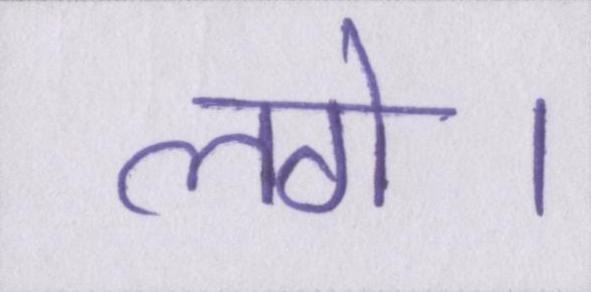 लगे ।